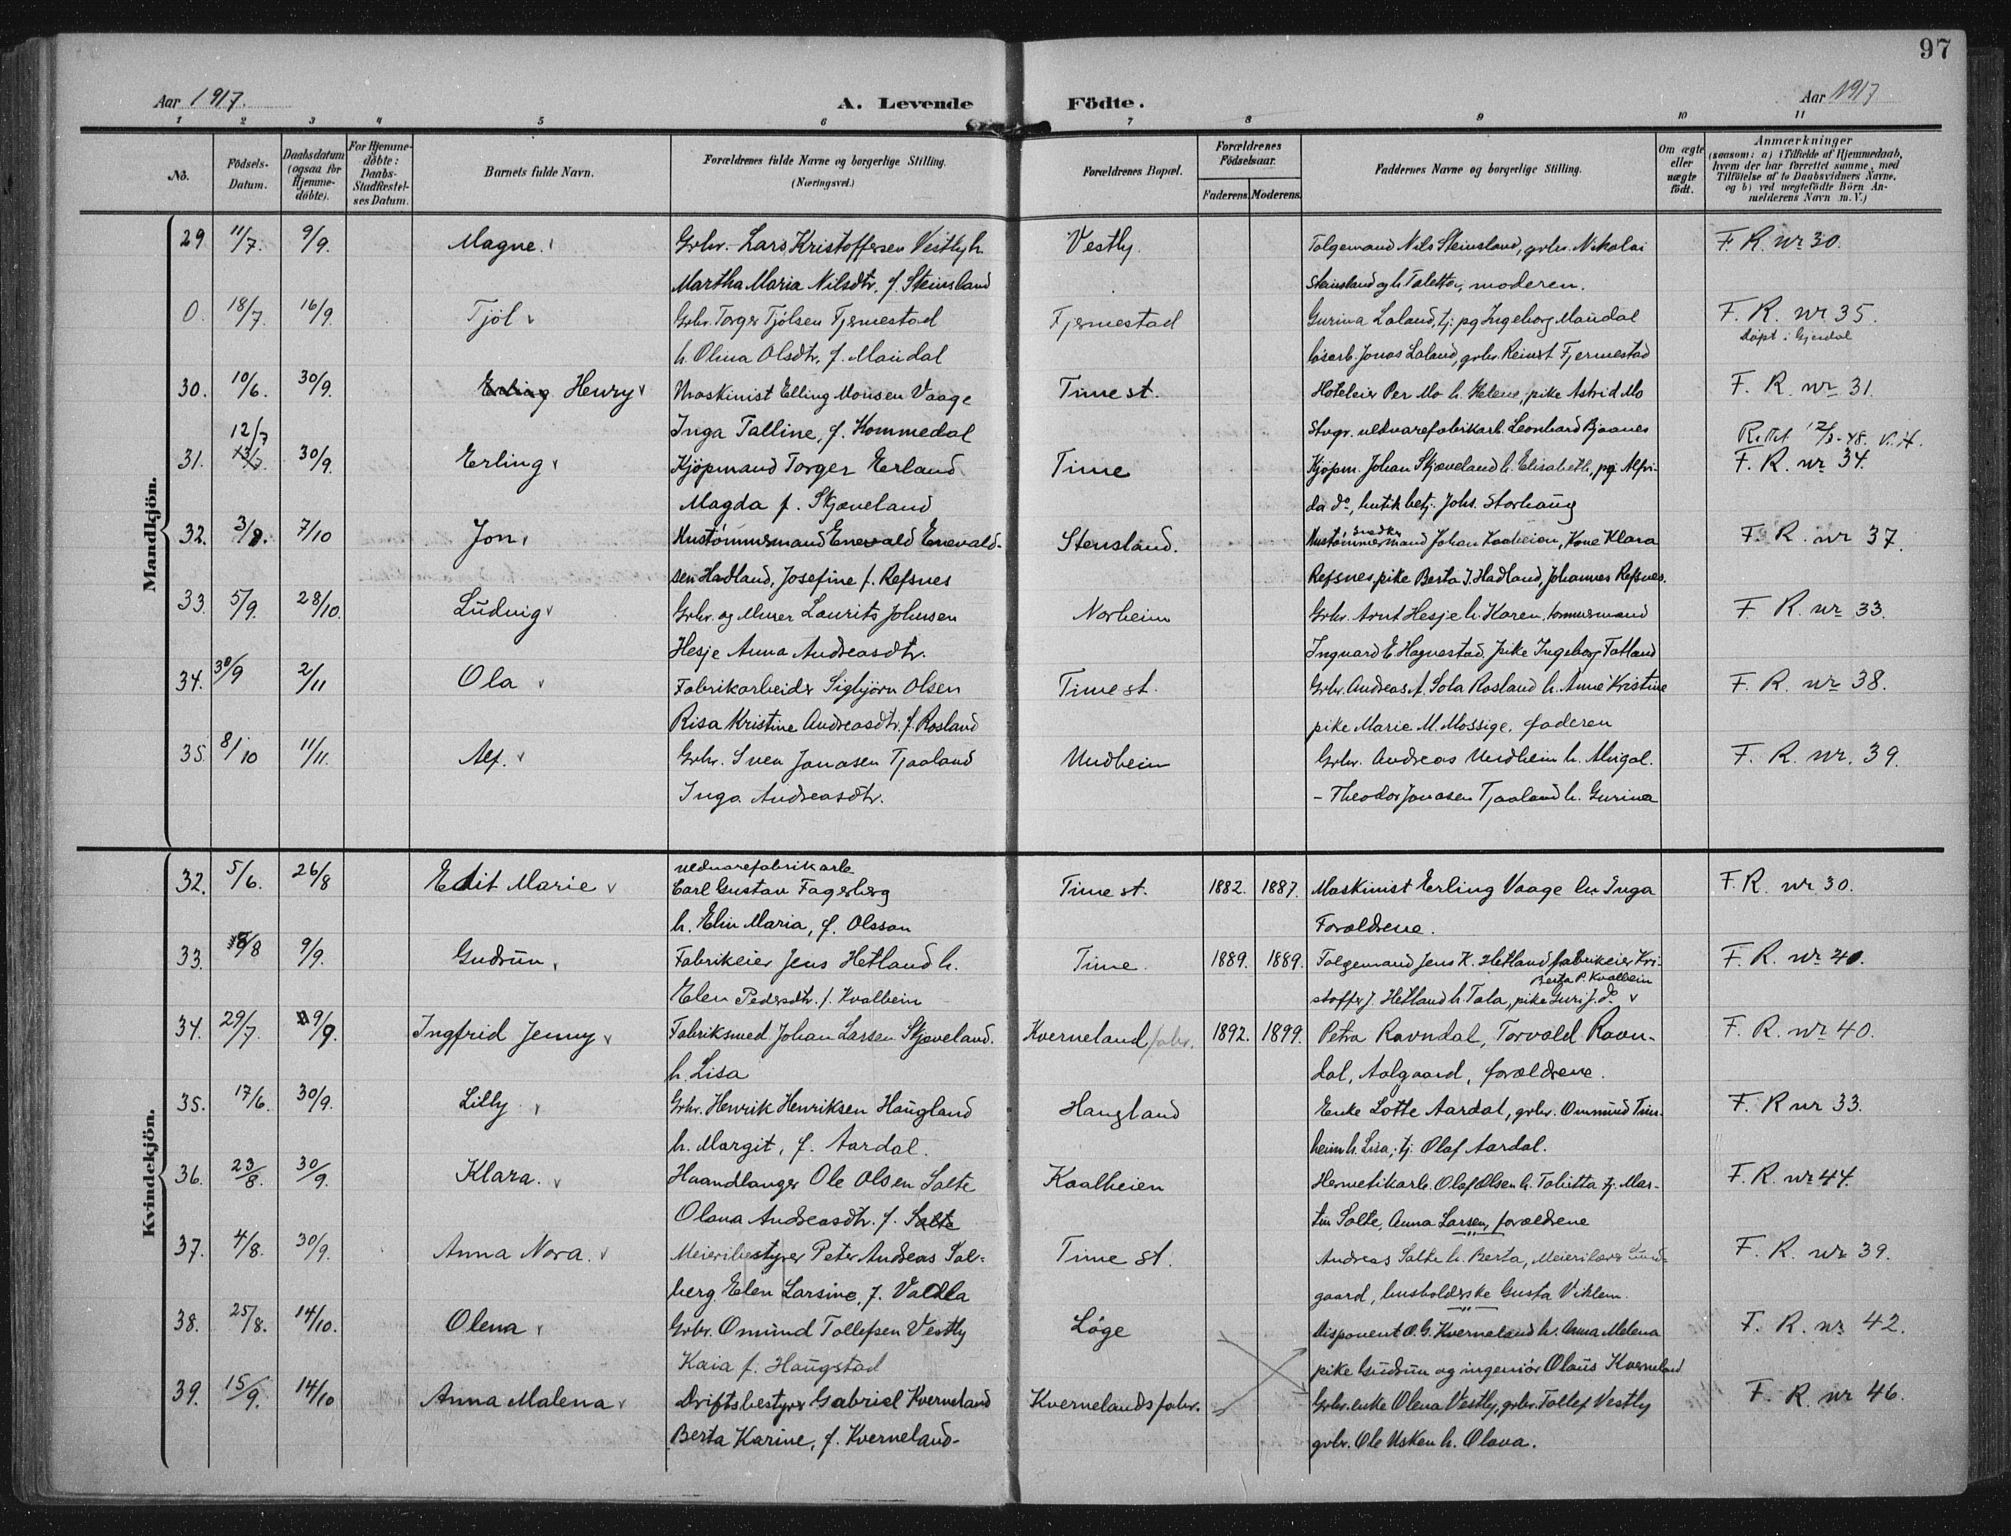 97
Aar 1917. A. Levende Födte. Aar 1917
1 2 3 4 5 6 7 8 9 10 11
No. Födsels-Datum. Daabsdatum (ogsaa for Hjemmedöbte). For Hjemmedöbte: Daabs-Stadfæstelses Datum. Barnets fulde Navn. Forældrenes fulde Navne og borgerlige Stilling. (Næringsvei.) Forældrenes Bopæl. Forældrenes Födselsaar. Faderens. Moderens. Faddernes Navne og borgerlige Stilling. Om ægte eller uægte födt. Anmærkninger (saasom: a) i Tilfælde af Hjemmedaab, hvem der har forrettet samme, med Tilföielse af to Daabsvidners Navne, og b) ved uægtefödte Börn Anmelderens Navn m. V.)
Mandkjön.
29 11/7. 9/9. Magne. Grbr. Lars Kristoffersen Vestly h. Vestly. Tolgemand Nils Steinsland, grbr. Nikolai F. R. nr 30.
Martha Maria Nilsdtr. f. Steinsland Steinsland og h. Taletta, moderen.
0. 18/7. 16/9. Tjöl Grbr. Torger Tjölsen Fjermestad Fjermestad Gurina Laland, tj. pg Ingeborg Maudal F. R. nr 35.
døpt i Gjesdal
h. Olina Olsdtr. f. Maudal løsarb. Jonas Laland, grbr. Reinert Fjermestad
30. 10/6. 30/9. Erling Henry Maskinist Elling Monsen Vaage Time st. Hoteleier Per Mo h. Helene, pike Astrid Mo F. R. nr 31.
Inga Talline, f. Kommedal Stvgr. uldvarefabrikarb. Leonhard Bjaanes
12/7
Rettet 12/3-48. V.H.
31. 13/7 30/9. Erling Kjöpmand Torger Erland Time Kjöpm. Johan Skjæveland h. Elisabeth, pg. Alfri- F. R. nr 34.
Magda f. Skjæveland da do, butikbetj. Johs. Storhaug
32. 3/9. 7/10 Jon Hustömmermand Enevald Enevald- Stensland. Hustömmermand Johan Kaaheien, Kone Klara F. R. nr 37.
sen Hadland, Josefine f. Refsnes Refsnes, pike Berta J. Hadland, Johannes Refsnes.
33. 5/9. 28/10. Ludvig Grbr. og Murer Laurits Johnsen Norheim Grbr. Arnt Hesje h. Karen, tömmermand F R. nr 33.
Hesje Anna Andreasdtr. Ingvard E. Hognestad, pike Ingeborg Tatland
34. 30/9 2/11 Ola Fabrikarbeider Sigbjörn Olsen Time st. Grbr. Andreas A. Sola Rosland h. Anne Kristine F. R. nr 38.
Risa Kristine Andreasdtr. f. Rosland pike Marie M. Mossige, faderen
35. 8/10 11/11. Alf. Grbr. Sven Jonasen Tjaaland Undheim Grbr. Andreas Undheim h. Abigal. F. R. nr. 39.
Inga Andreasdtr. - Theodor Jonasen Tjaaland h. Gurina
Kvindekjön.
uldvarefabrikarb
32. 5/6. 26/8 Edit Marie Carl Gustav Fagerberg Time st. 1882. 1887. Maskinist Erling Vaage h. Inga F. R. nr 30.
h. Elin Maria, f. Olsson Forældrene.
33. 5/8 9/9. Gudrun Fabrikeier Jens Hetland h. Time. 1889. 1889. Tolgemand Jens K. Hetland, fabrikeier Kri- F. R. nr 40.
Berta P. Kvalheim
Elen Pedersdtr. f. Kvalheim stoffer J. Hetland h. Tala, pike Guri J. do
34. 29/7. 9/9. Ingfrid Jenny Fabriksmed Johan Larsen Skjæveland. Kverneland fabr. 1892. 1899. Petra Ravndal, Torvald Ravn- F. R. nr 40.
h. Lisa dal, Aalgaard, forældrene.
35. 17/6. 30/9. Lilly Grbr. Henrik Henriksen Haugland Haugland Enke Lotte Aardal, grbr. Ommund Tun- F. R nr 33.
h. Margit, f. Aardal. heim h. Lisa, tj. Olaf Aardal.
36. 23/8. 30/9. Klara. Haandlanger Ole Olsen Salte Kaalheien Hermetikarb. Olaf Olsen h. Tabitta tj. Mar- F. R. nr 44.
Olava Andreasdtr. f. Salte tin Salte, Anna Larsen, forældrene
37. 4/8. 30/9. Anna Nora. Meieribestyrer Peter Andreas Sol- Time st. Andreas Salte h. Berta, Meierilærer Lund- F. R. nr 39.
berg Elen Larsine, f. Vadla gaard, husholderske Gusta Viklem.
38. 25/8. 14/10. Olena Grbr. Omund Tollefsen Vestly Löge Disponent O. G. Kverneland h. Anna Malena F. R. nr 42.
Kaia f. Haugstad pike Gudrun og ingeniör Olaus Kverneland
39. 15/9. 14/10 Anna Malena Driftsbestyrer Gabriel Kverneland Kvernelands fabr. Grbr. enke Olena Vestly, grbr. Tollef Vestly F. R. nr 46.
Berta Karine, f. Kverneland- grbr. Ole Usken h. Olava.